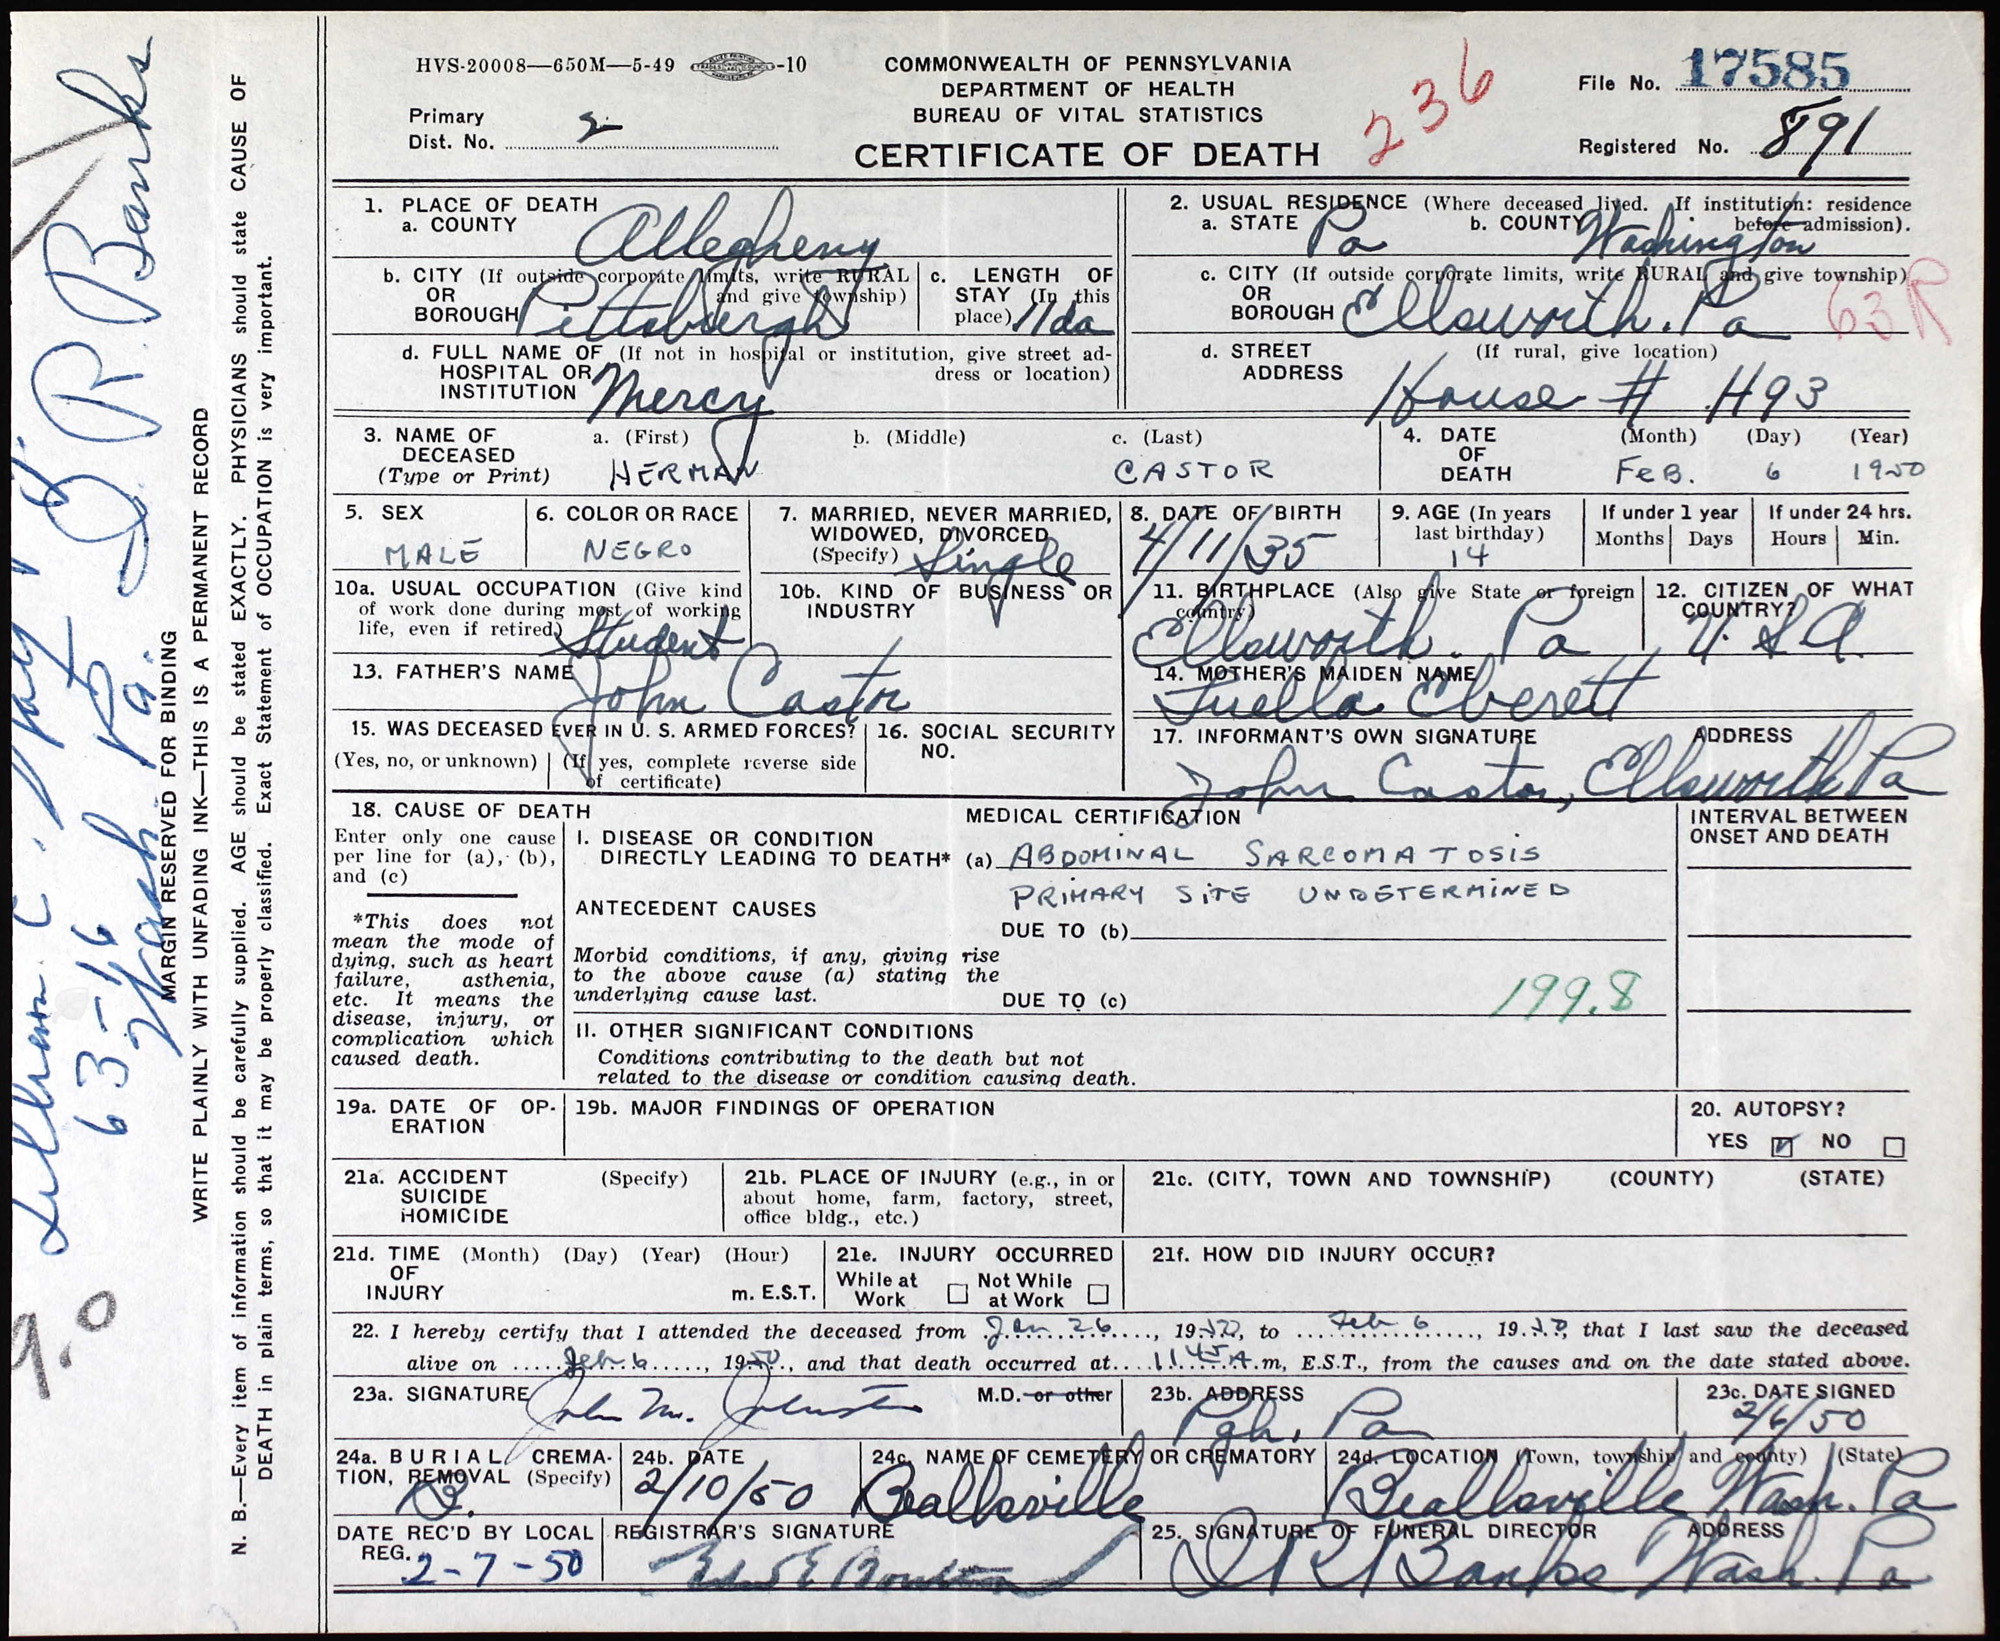 HVS-20008—650M—5-49 -10
COMMONWEALTH OF PENNSYLVANIA
DEPARTMENT OF HEALTH
BUREAU OF VITAL STATISTICS
CERTIFICATE OF DEATH
236
File No. 17585
Primary
Dist. No. 2
Registered No. 891
1. PLACE OF DEATH
a. COUNTY Allegheny
2. USUAL RESIDENCE (Where deceased lived. If institution: residence before admission).
a. STATE Pa b. COUNTY Washington
b. CITY (If outside corporate limits, write RURAL and give township)
OR
BOROUGH Pittsburgh
c. LENGTH OF STAY (In this place) 11da
c. CITY (If outside corporate limits, write RURAL and give township)
OR
BOROUGH Ellsworth. Pa
63R
d. FULL NAME OF (If not in hospital or institution, give street address or location)
HOSPITAL OR
INSTITUTION Mercy
d. STREET (If rural, give location)
ADDRESS House # H93
3. NAME OF DECEASED (Type or Print)
a. (First) b. (Middle) c. (Last)
HERMAN CASTOR
4. DATE OF DEATH (Month) (Day) (Year)
FEB. 6 1950
5. SEX
MALE
6. COLOR OR RACE
NEGRO
7. MARRIED, NEVER MARRIED, WIDOWED, DIVORCED (Specify) Single
8. DATE OF BIRTH
4/11/35
9. AGE (In years last birthday)
14
If under 1 year
Months Days
If under 24 hrs.
Hours Min.
10a. USUAL OCCUPATION (Give kind of work done during most of working life, even if retired) Student
10b. KIND OF BUSINESS OR INDUSTRY
11. BIRTHPLACE (Also give State or foreign country)
Ellsworth. Pa
12. CITIZEN OF WHAT COUNTRY?
U. S A.
13. FATHER'S NAME
John Castor
14. MOTHER'S MAIDEN NAME
Luella Eberett
15. WAS DECEASED EVER IN U. S. ARMED FORCES?
(Yes, no, or unknown) (If yes, complete reverse side of certificate)
16. SOCIAL SECURITY NO.
17. INFORMANT'S OWN SIGNATURE ADDRESS
John Castor, Ellsworth Pa
18. CAUSE OF DEATH
Enter only one cause per line for (a), (b), and (c)
MEDICAL CERTIFICATION
INTERVAL BETWEEN ONSET AND DEATH
I. DISEASE OR CONDITION
DIRECTLY LEADING TO DEATH* (a) ABDOMINAL SARCOMATOSIS
PRIMARY SITE UNDETERMINED
*This does not mean the mode of dying, such as heart failure, asthenia, etc. It means the disease, injury, or complication which caused death.
ANTECEDENT CAUSES
DUE TO (b)
Morbid conditions, if any, giving rise to the above cause (a) stating the underlying cause last.
DUE TO (c)
199.8
II. OTHER SIGNIFICANT CONDITIONS
Conditions contributing to the death but not related to the disease or condition causing death.
19a. DATE OF OPERATION
19b. MAJOR FINDINGS OF OPERATION
20. AUTOPSY?
YES NO
21a. ACCIDENT (Specify)
SUICIDE
HOMICIDE
21b. PLACE OF INJURY (e.g., in or about home, farm, factory, street, office bldg., etc.)
21c. (CITY, TOWN AND TOWNSHIP) (COUNTY) (STATE)
21d. TIME (Month) (Day) (Year) (Hour)
OF
INJURY m. E.S.T.
21e. INJURY OCCURRED
While at Work Not While at Work
21f. HOW DID INJURY OCCUR?
22. I hereby certify that I attended the deceased from Jan 26, 1950, to Feb 6, 1950, that I last saw the deceased
alive on Feb. 6, 1950, and that death occurred at 11 45 A.m, E.S.T., from the causes and on the date stated above.
23a. SIGNATURE John M. Johnston M.D. or other
23b. ADDRESS
Pgh. Pa
23c. DATE SIGNED
2/6/50
24a. BURIAL, CREMATION, REMOVAL (Specify)
B.
24b. DATE
2/10/50
24c. NAME OF CEMETERY OR CREMATORY
Beallsville
24d. LOCATION (Town, township and county) (State)
Beallsville Wash. Pa
DATE REC'D BY LOCAL REG.
2-7-50
REGISTRAR'S SIGNATURE
25. SIGNATURE OF FUNERAL DIRECTOR ADDRESS
D R Banks Wash. Pa
N. B.—Every item of information should be carefully supplied. AGE should be stated EXACTLY. PHYSICIANS should state CAUSE OF
DEATH in plain terms, so that it may be properly classified. Exact Statement of OCCUPATION is very important.
WRITE PLAINLY WITH UNFADING INK—THIS IS A PERMANENT RECORD
MARGIN RESERVED FOR BINDING
D. R. Banks
63-16
Wash. Pa.
9.0